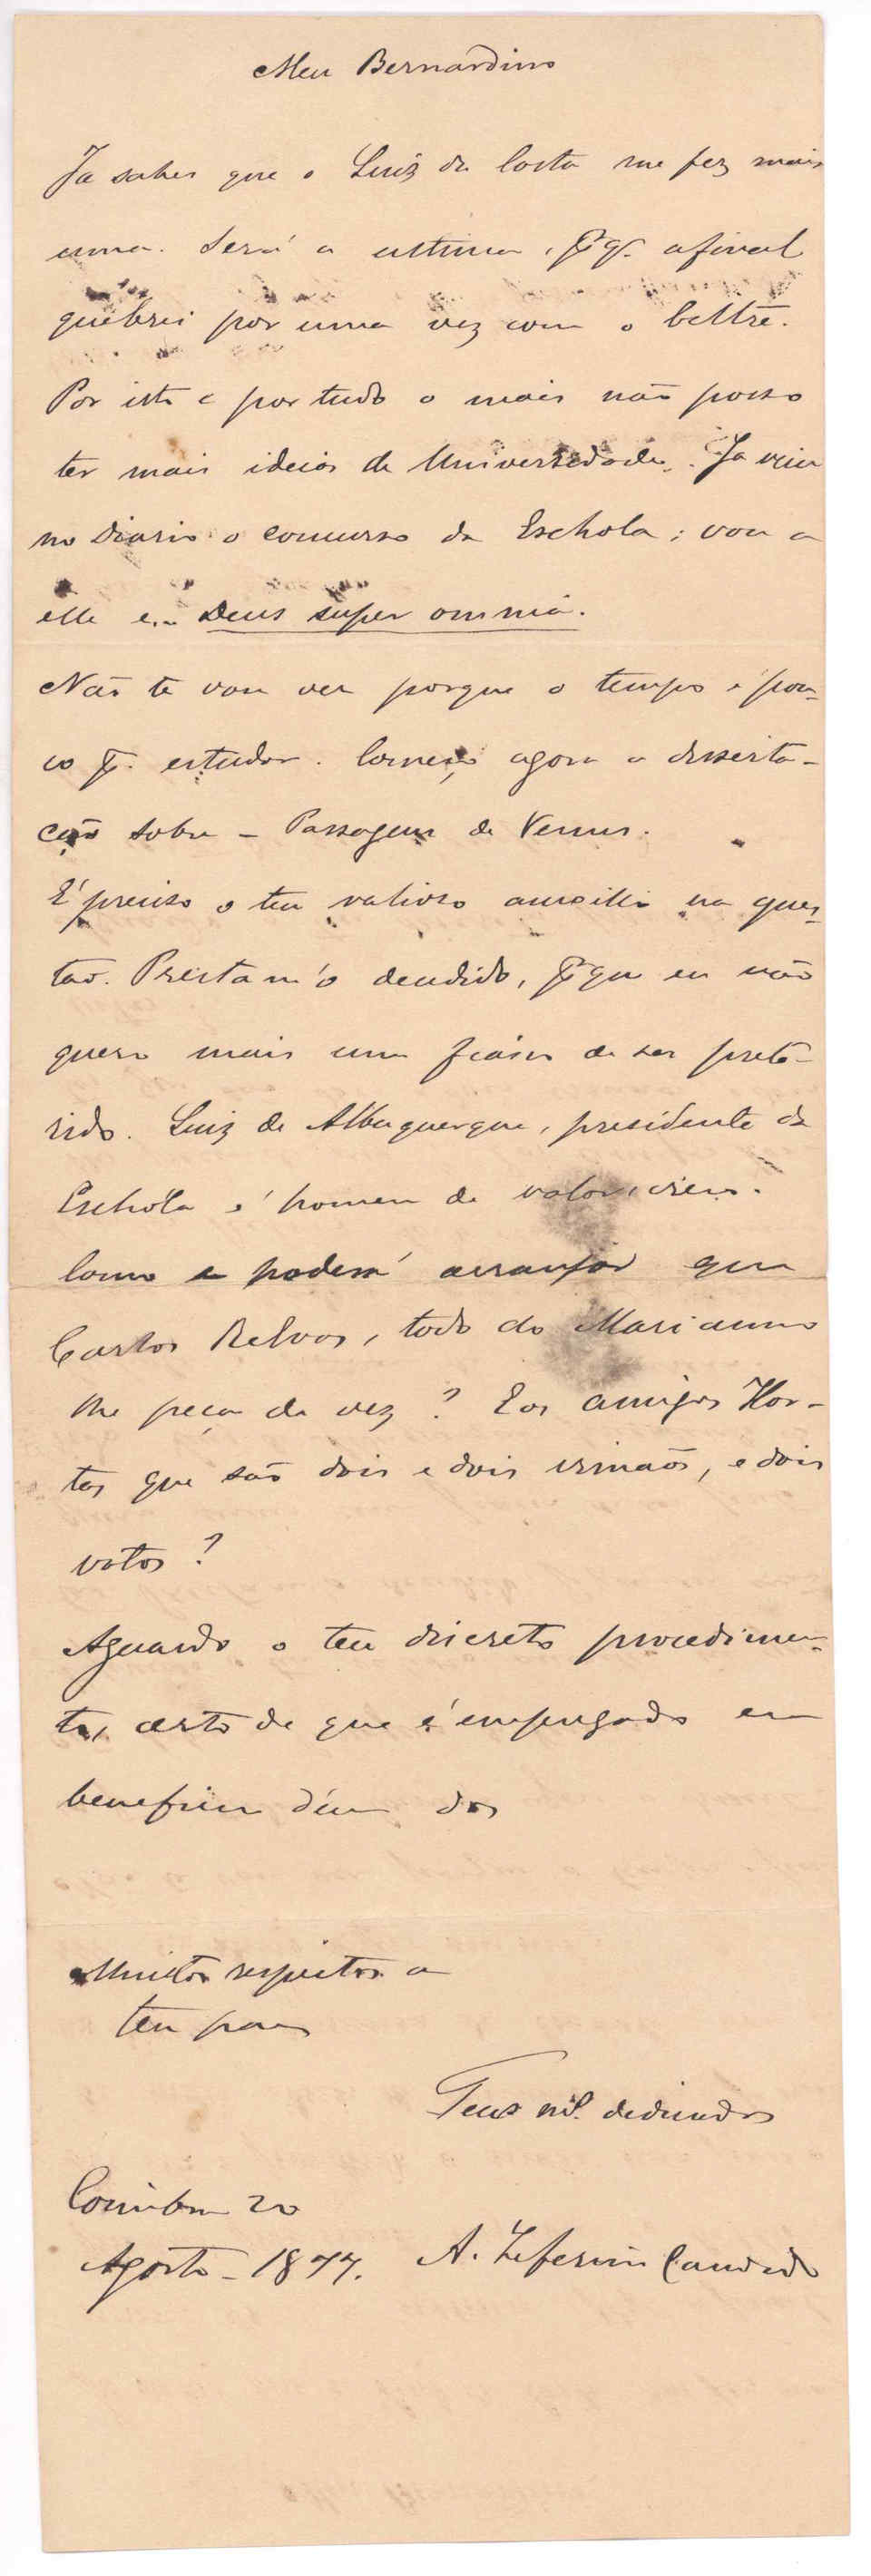 Meu Bernardino
Ja sabes que o Luiz da Costa me fez mais
uma. Será a ultima, pq. afinal
quebrei por uma vez com o bеltre.
Por isto e por tudo o mais não posso
ter mais ideias de Universidade. Ja veiu
no Diario o concurso da Eschola; vou a
elle e... Deus super omnia.
Não te vou ver porque o tempo é pou-
co p. estudar. Começo agora a disserta-
ção sobre - Passagem de Venus.
É preciso o teu valioso auxilio na ques-
tão. Presta m'o decidido, pque eu não
quero mais um fiasco de ser prete-
rido. Luiz de Albuquerque, presidente da
Eschóla é homem de valor, creio.
Como se poderá arranjar que
Carlos Relvas, todo do Marianno
lhe peça da vez? E os amigos Hor-
tas que são dois e dois irmãos, e dois
votos?
Aguardo o teu discreto procedimen-
to, certo de que é empregado em
beneficio d'um dos
Muitos respeitos a
teu pae
Teus mt. dedicados
Coimbra 20
Agosto - 1877. A. Zeferino Candido